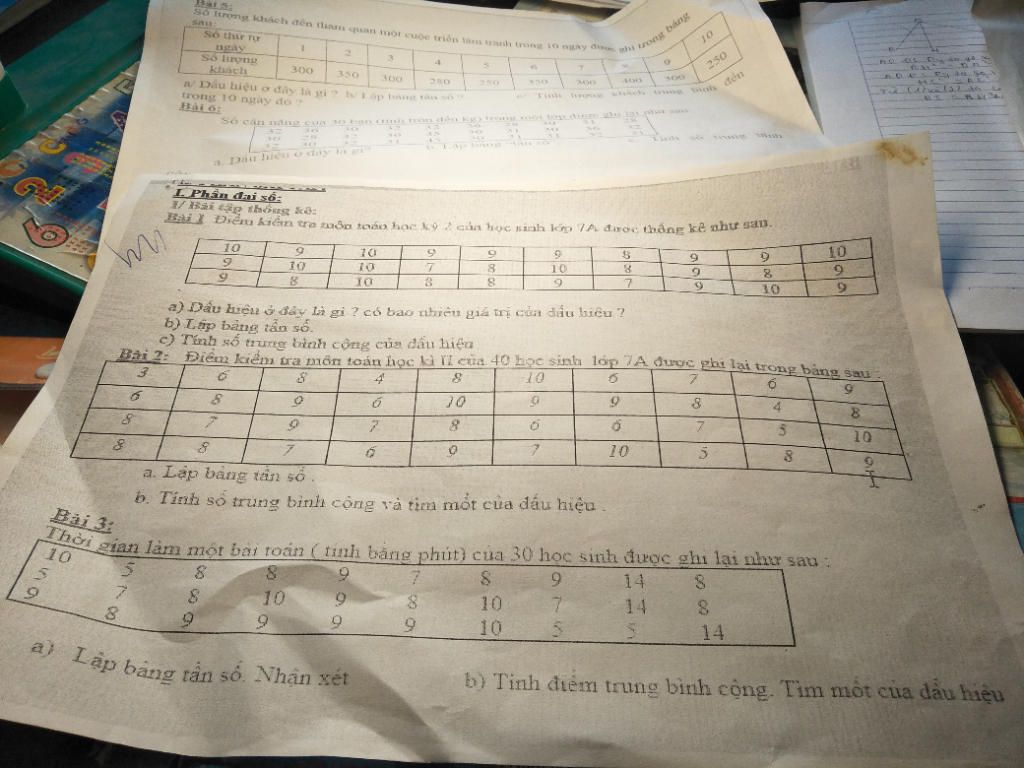 Bài 5:
Số lượng khách đến tham quan một cuộc triển lãm tranh trong 10 ngày được ghi trong bảng
sau:
Số thứ tự ngày 1 2 3 4 5 6 7 8 9 10
Số lượng khách 300 350 300 280 250 350 300 400 300 250
a/ Dấu hiệu ở đây là gì ? b/ Lập bảng tần số ? c/ Tính lượng khách trung bình đến
trong 10 ngày đó ?
Bài 6:
Số cân nặng của 30 bạn (tính tròn đến kg) trong một lớp được ghi lại như sau:
a. Dấu hiệu ở đây là gì? b. Lập bảng "tần số" c. Tính số trung bình
I. Phần đại số:
1/ Bài tập thống kê:
Bài 1 Điểm kiểm tra môn toán học kỳ 2 của học sinh lớp 7A được thống kê như sau.
10 9 10 9 9 9 8 9 9 10
9 10 10 7 8 10 8 9 8 9
9 8 10 8 8 9 7 9 10 9
a) Dấu hiệu ở đây là gì ? có bao nhiêu giá trị của dấu hiệu ?
b) Lập bảng tần số.
c) Tính số trung bình cộng của dấu hiệu
Bài 2: Điểm kiểm tra môn toán học kì II của 40 học sinh lớp 7A được ghi lại trong bảng sau :
3 6 8 4 8 10 6 7 6 9
6 8 9 6 10 9 9 8 4 8
8 7 9 7 8 6 6 7 5 10
8 8 7 6 9 7 10 5 8 9
a. Lập bảng tần số .
b. Tính số trung bình cộng và tìm mốt của dấu hiệu .
Bài 3:
Thời gian làm một bài toán ( tính bằng phút) của 30 học sinh được ghi lại như sau :
10 5 8 8 9 7 8 9 14 8
5 7 8 10 9 8 10 7 14 8
9 8 9 9 9 9 10 5 5 14
a) Lập bảng tần số. Nhận xét
b) Tính điểm trung bình cộng. Tìm mốt của dấu hiệu